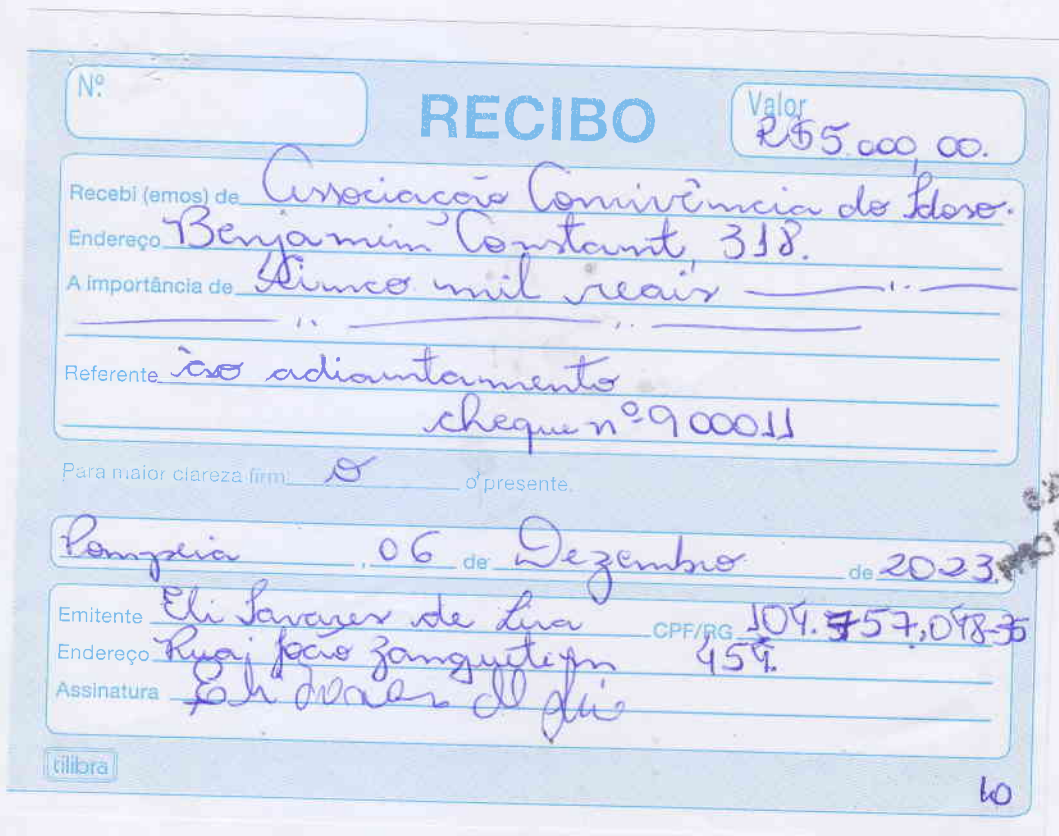 Nº
RECIBO
Valor
R$5.000,00.
Recebi (emos) de Associação Convivência do Idoso.
Endereço Benjamin Constant, 318.
A importância de Cinco mil reais
Referente ao adiantamento
cheque nº 900011
Para maior clareza firm o o presente.
Pompeia, 06 de Dezembro de 2023
Emitente Eli Tavares de Lira CPF/RG
Endereço Rua; João 454.
Assinatura Eli
tilibra
10